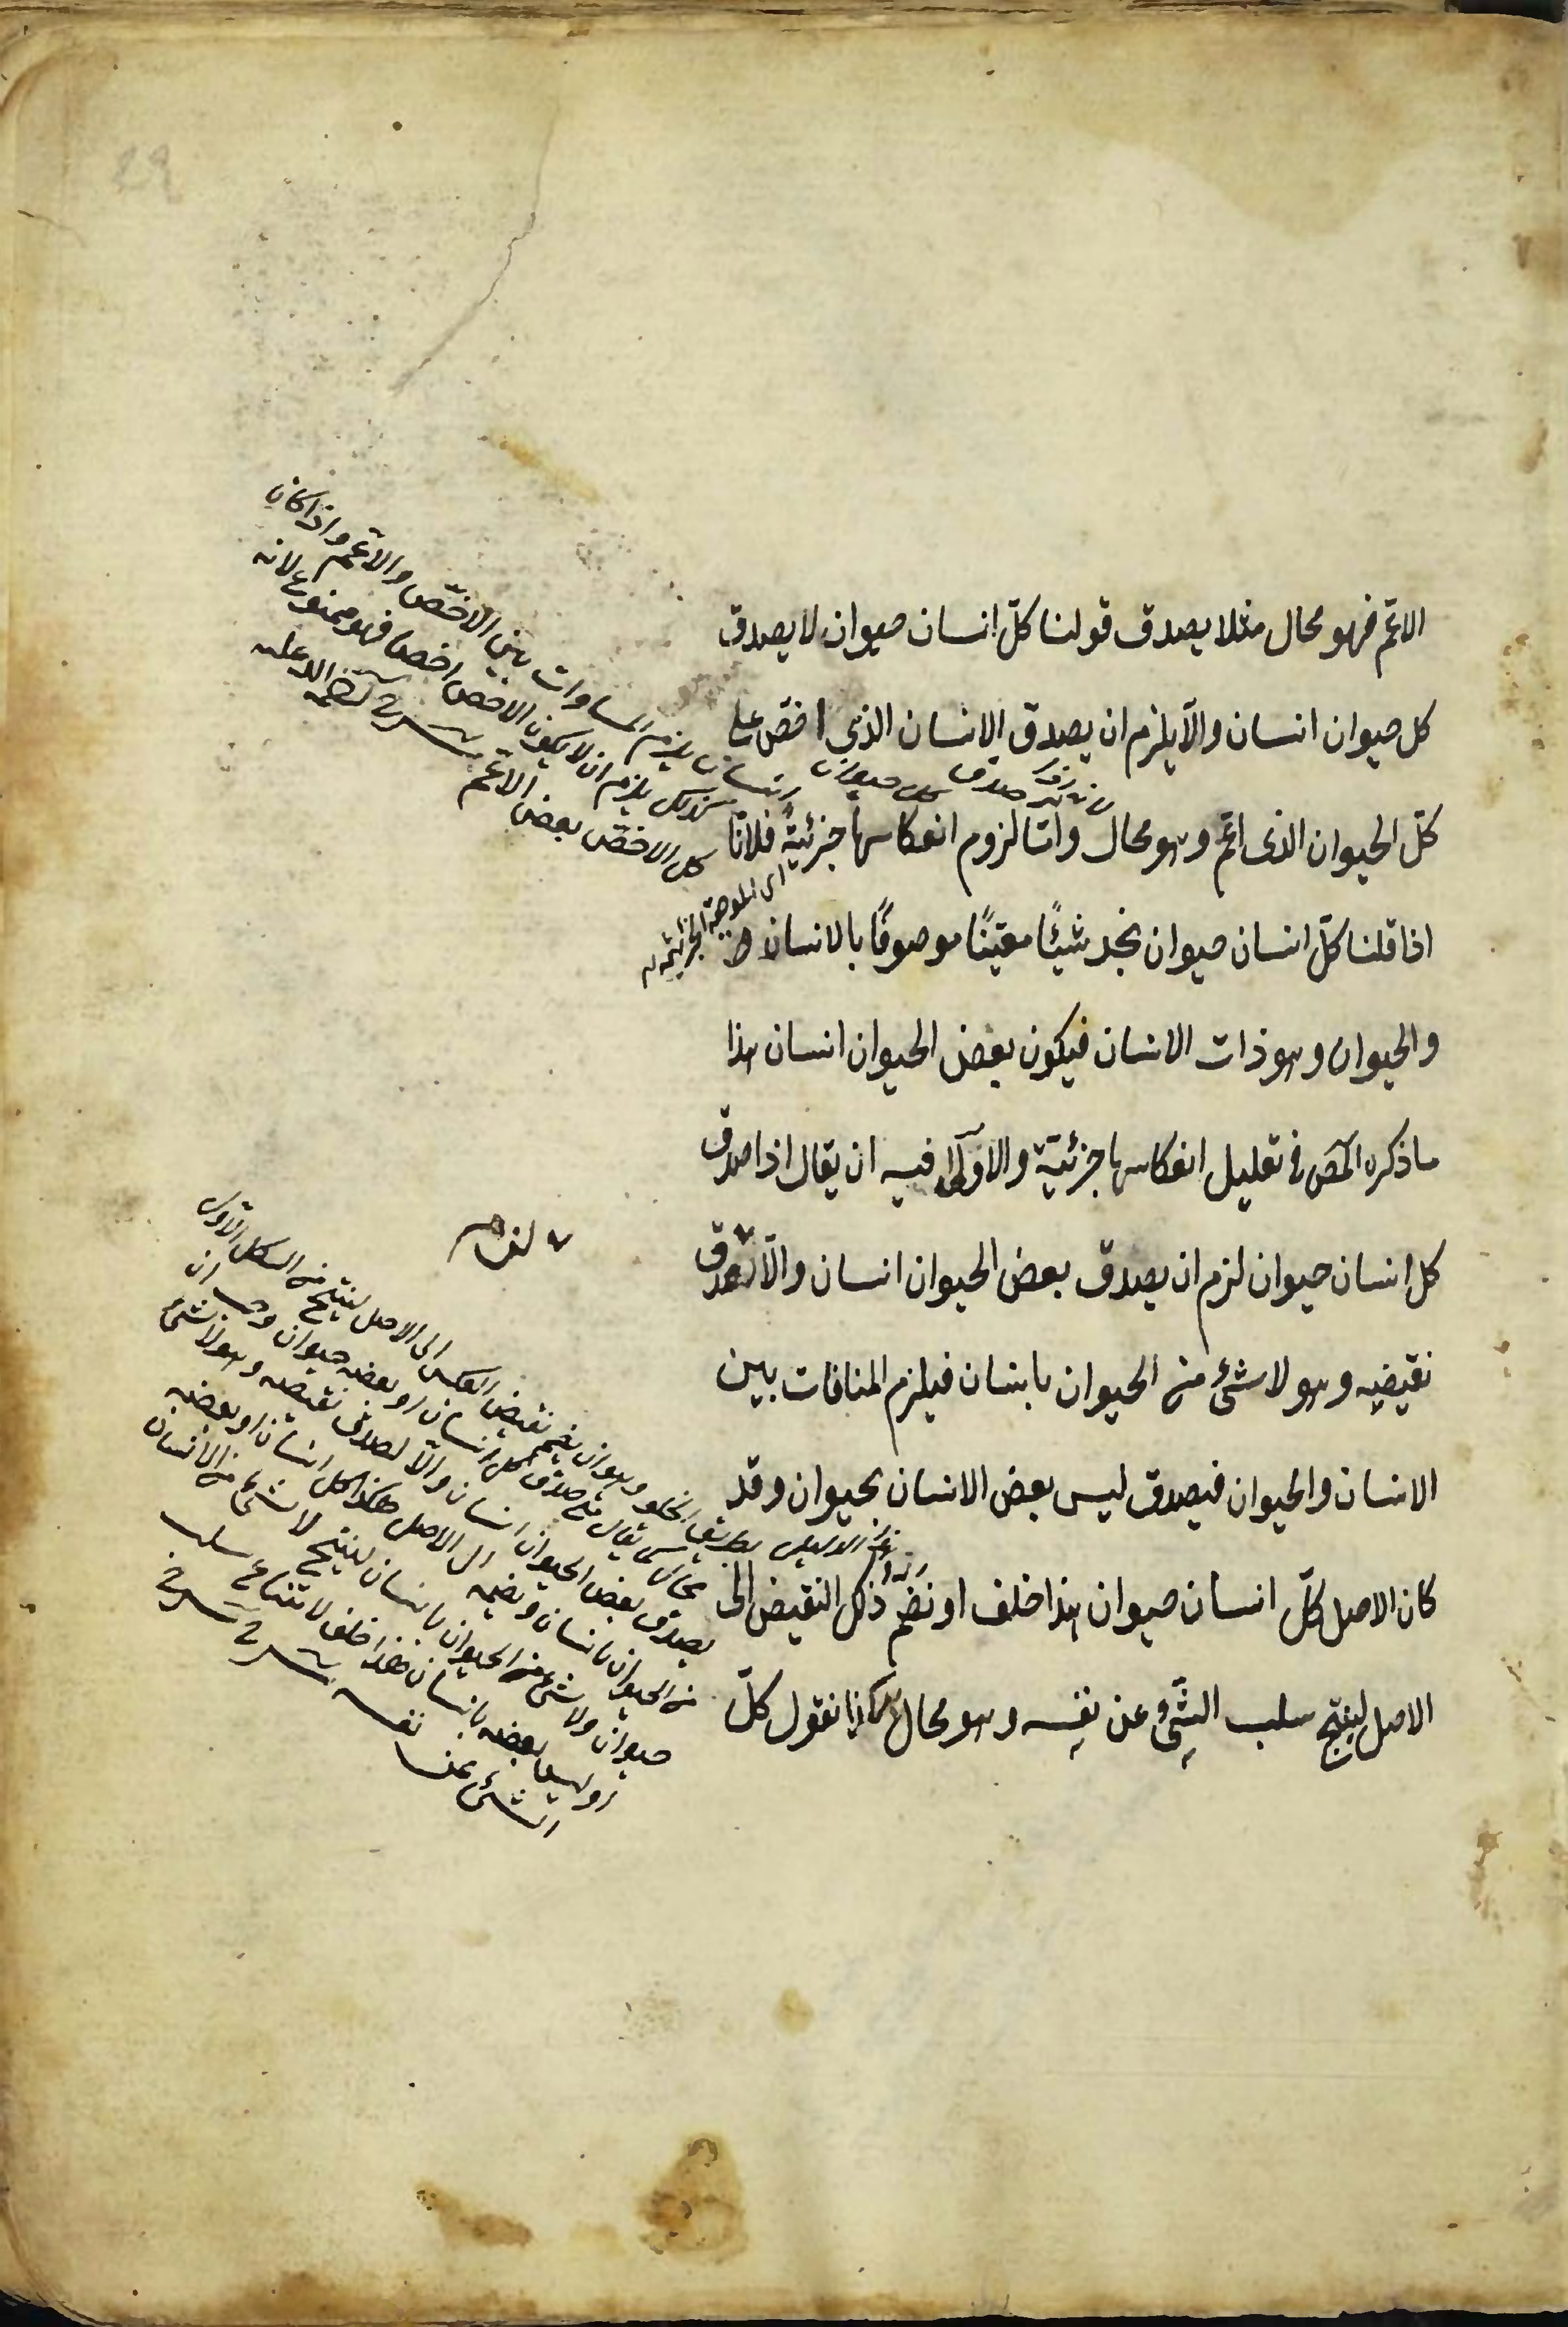 الاعمّ فهو محال مثلا يصدق قولنا كلّ انسان حيوان لا يصدق
كل حيوان انسان والّا يلزم ان يصدق الانسان الذى اخصّ على
كلّ الحيوان الذى اعمّ وهو محال وامّا لزوم انعكاسها جزئيةً فلانّا
اذا قلنا كلّ انسان حيوان نجد شيئًا معيّنًا موصوفًا بالانسان
والحيوان وهو ذات الانسان فيكون بعض الحيوان انسان هذا
ما ذكره المص فى تعليل انعكاسها جزئيّة والاولى فيه ان يقال اذا صدق
كل انسان حيوان لزم ان يصدق بعض الحيوان انسان والّا لصدق
نقيضيه وهو لا شئ من الحيوان بانسان فيلزم المنافات بين
الانسان والحيوان فيصدق ليس بعض الانسان بحيوان وقد
كان الاصل كلّ انسان حيوان هذا خلف او نضم ذلك النقيض الى
الاصل لينتج سلب الشَّئِ عن نفسِه وهو محال هكذا نقول كلّ
انسان يلزم المساوات بين الاخصّ والاعمّ واذا كان
كذلك يلزم ان لا يكون الاخص اخصا فهو ممنوع لانه
كل الاخصّ بعض الاعمّ شرح
اى الموجبة الجزئية
نقيض العكس الى الاصل لينتج من الشكل الاول
محال كما يقال صدق كل انسان او بعضه حيوان وجب ان
يصدق بعض الحيوان انسان والّا لصدق نقيضه وهو لا شئ
من الحيوان بانسان ونضمه الى الاصل هكذا كل انسان او بعضه
حيوان ولا شئ من الحيوان بانسان لينتج لا شئ من الانسان
او ليس بعضه بانسان هذا خلف لامتناع سلب
الشئ عن نفسه شرح